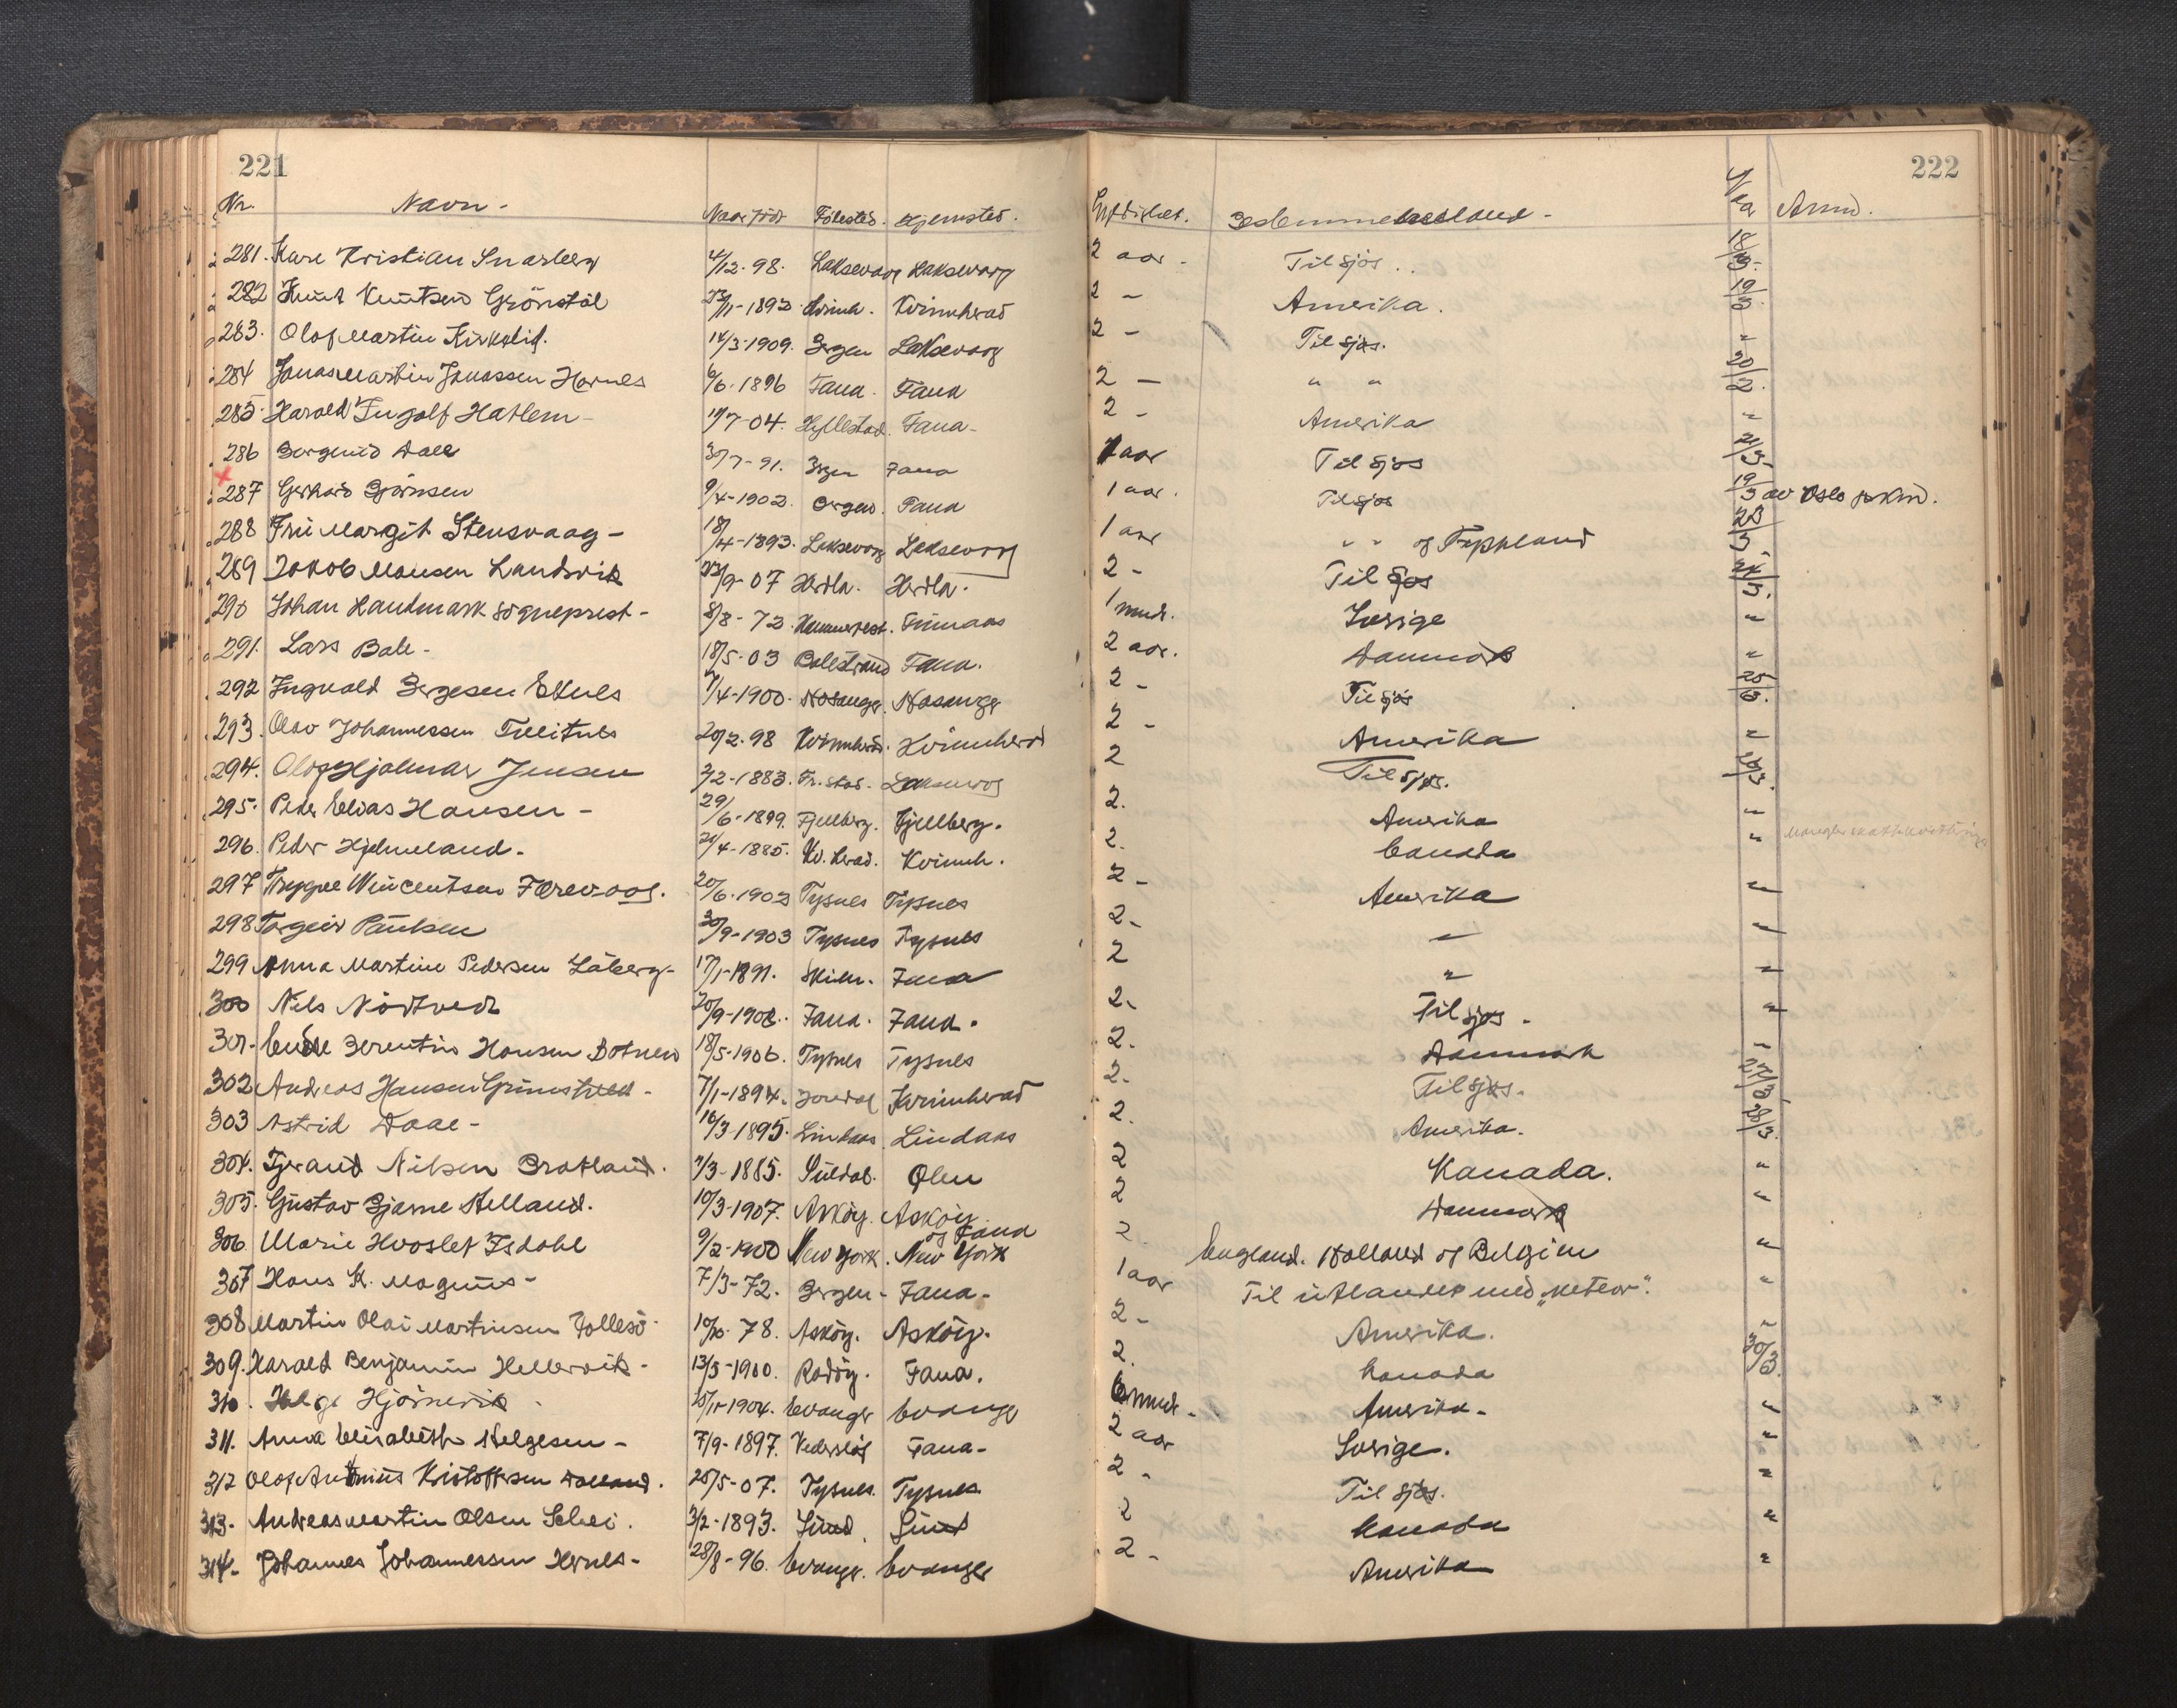 221 222
Nr. Navn - Naar född Födested. Hjemsted. Gyldighet. Bestemmelsesland - Naar Anm.
281. Kare Kristian Snarberg 4/12-98. Laksevaag Laksevaag 2 aar - Til sjøs.. 18/3-
282 Knut Knutsen Grönstöl 1893 Kvinnh. Kvinnherad 2 - Amerika. 19/3.
283. Olaf Martin Kirkelid. 14/3-1909. Bergen Laksevaag 2 - Til sjøs. "
284 Jonas Martin Jonassen Hornes 6/6-1896 Fana. Fana 2 - " " 20/3.
285. Harald Ingolf Hatlem - 7-04. Hyllestad. Fana - 2 - Amerika "
286 Bergend Daae 30/7-91. Bergen Fana 1 aar Til sjøs 21/3-
287 Gerhard Björnsen 9/4-1902. Bergen. Fana 1 aar. Til sjøs 19/3 av Oslo
288 Fru Margit Stensvaag - 18/4-1893. Laksevaag Laksevaag 1 aar " " og 23/3
289 Jakob Monsen Landsvik 23/9-07 Herdla. Herdla. 2 - Til sjøs 24/3.
290 Johan Handmark sogneprest - 8/8-72. Hammerfest. Finnaas 1 mnd. Sverige "
291. Lars Bale - 18/5-03 Balestrand Fana. 2 aar. Danmark "
292 Ingvald Bergesen Eknes 7/4-1900. Hosanger. Hosanger 2 - Til sjøs 25/3.
293. Olav Johannessen Tveitnes 20/2-98 Kvinnherad. Kvinnherad 2 - Amerika "
294. Olaf Hjalmar Jensen 2/2-1883. Fr.stad. Laksevaag 2 Til sjøs. 26/3.
295. Peder Elias Hansen - 29/6-1899. Fjellberg. Fjellberg. 2. Amerika "
296. Peder Hjelmeland. 21/4-1885. Kv.herad. Kvinnh. 2. Canada " Mangler skattekvittering
297 Trygve Wincentsen Færevaag. 20/6-1902 Tysnes Tysnes 2 - Amerika "
298 Torgeir Paulsen 30/9-1903 Tysnes Tysnes 2 - " "
299 Anna Martine Pedersen Låberg - 17/1-1891. Skien. Fana 2 " "
300 Nils Nordtvedt 20/9-1908. Fana. Fana. 2. Til sjøs. "
301. Endre Berentin Hansen Botnen 18/5-1906. Tysnes Tysnes 2. Danmark "
302 Andreas Hansen Grimstveit - 7/1-1894. Kvinnherad 2. Til sjøs. 27/3
303 Astrid Daae - 16/3-1895. Lindaas Lindaas 2. Amerika. 28/3.
304. Tjerand Nilsen Bratland. 7/3-1885. Suldal. Ølen 2 Kanada. "
305. Gustav Bjarne Helland. 10/3-1907. Asköy. Asköy 2 Danmark "
306 Marie Hvoslef Isdahl 9/2-1900 New York. og Fana New York 2 England. Holland og Belgien "
307 Hans K. Magnus - 7/3-72. Bergen - Fana - 1 aar Til utlandet med "Meteor". "
308 Martin Olai Martinsen Follesö 10/10-78. Asköy. Asköy. 2 - Amerika. "
309. Harald Benjamin Hellervik - 13/5-1900. Radöy. Fana. 2. Kanada 30/3.
310. Helge Hjörnevik - 11-1904. Evanger Evanger 6 mnd. Amerika - "
311. Anna Elisabeth Helgesen - 7/9-1897. Vederslöf Fana - 2 aar Sverige. "
312 Olaf Antonius Kristoffersen Dalland. 25/5-07. Tysnes. Tysnes 2 - Til sjøs. "
313. Andreas Martin Olsen Selvei. 3/2-1893. Sund. Sund 2 Kanada "
314. Johannes Johannessen Hernes - 28/8-96. Evanger. Evanger 2 - Amerika "